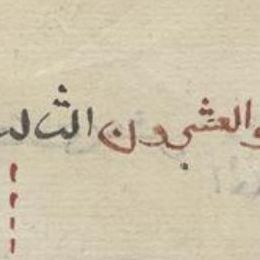 والعشرون الثالث